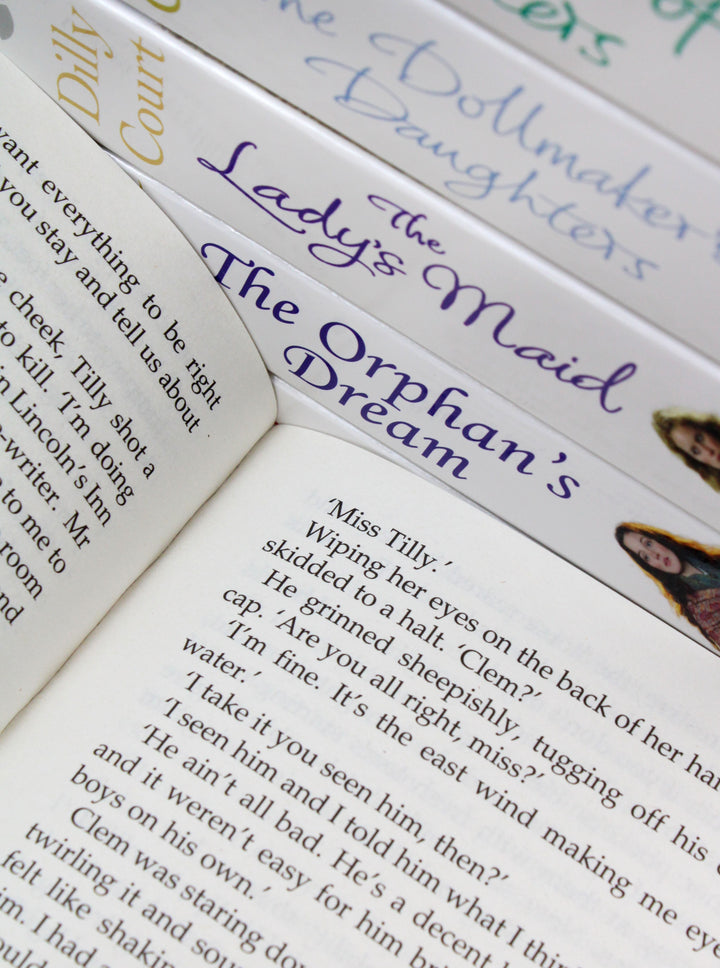 of
ters
The Dollmaker's
Daughters
Dilly
Court
The
Lady's Maid
The Orphan's
Dream
want everything to be right
you stay and tell us about
cheek, Tilly shot a
to kill. 'I'm doing
in Lincoln's Inn
-writer. Mr
to me to
room
'Miss Tilly.'
Wiping her eyes on the back of her
skidded to a halt. 'Clem?'
He grinned sheepishly, tugging off his
cap. 'Are you all right, miss?'
'I'm fine. It's the east wind making me
water.'
'I take it you seen him, then?'
'I seen him and I told him what I
'He ain't all bad. He's a decent
and it weren't easy for him
boys on his own.'
Clem was staring
twirling it and
felt like
I had a